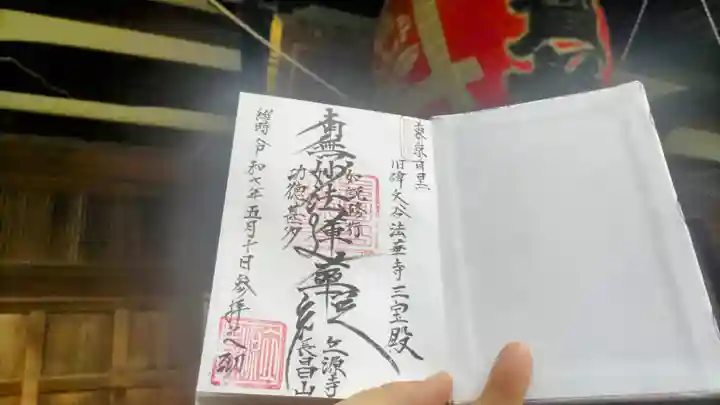 東京目黒
旧碑文谷法華寺三宝殿
如説修行
南無妙法蓮華経
功徳甚多
維時令和七年五月十日参拝之砌
立源寺
長昌山